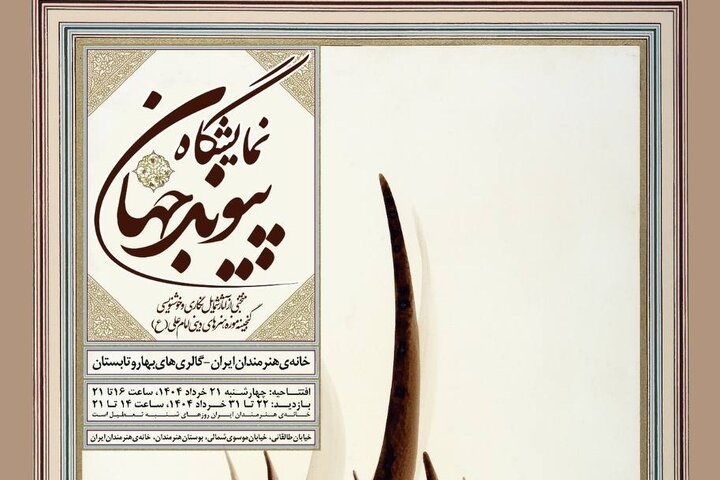 نمایشگاه
پیوند جهان
منتخبی از آثار شمایل نگاری و خوشنویسی
گنجینه موزه هنرهای دینی امام علی (ع)
خانه‌ی هنرمندان ایران - گالری‌های بهار و تابستان
افتتاحیه: چهارشنبه ۲۱ خرداد ۱۴۰۴، ساعت ۱۶ تا ۲۱
بازدید: ۲۲ تا ۳۱ خرداد ۱۴۰۴، ساعت ۱۴ تا ۲۱
خانه‌ی هنرمندان ایران روزهای شنبه تعطیل است
خیابان طالقانی، خیابان موسوی شمالی، بوستان هنرمندان، خانه‌ی هنرمندان ایران